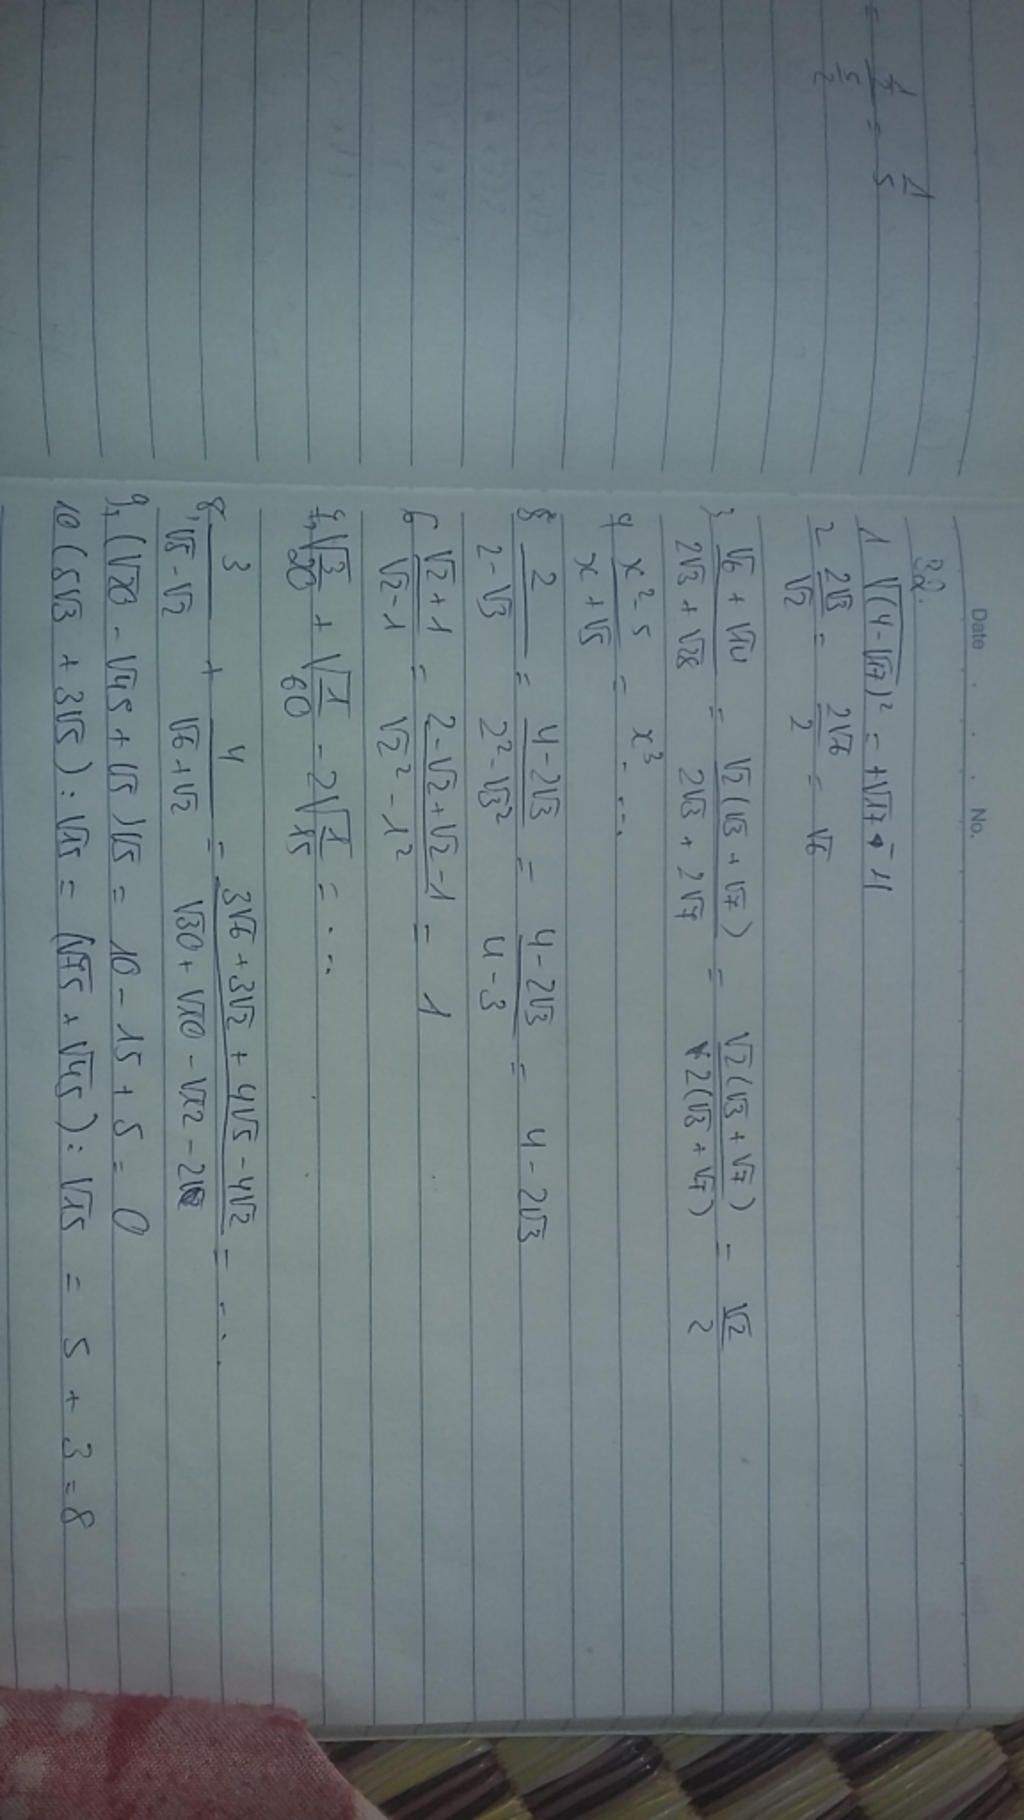 = 1/(5/2) = 1/5
Date . . . No.
32.
1 √(4-√17)² = +√17 - 4
2 2√3/√2 = 2√6/2 = √6
3, (√6 + √14)/(2√3 + √28) = √2(√3 + √7)/(2√3 + 2√7) = √2(√3 + √7)/2(√3 + √7) = √2/2
4 (x² - 5)/(x + √5) = x³ ...
5 2/(2-√3) = (4-2√3)/(2²-√3²) = (4-2√3)/(4-3) = 4-2√3
6 (√2+1)/(√2-1) = (2-√2+√2-1)/(√2²-1²) = 1
7, √(3/20) + √(1/60) - 2√(1/15) = ...
8, 3/(√5-√2) + 4/(√6+√2) = (3√6+3√2+4√5-4√2)/(√30+√10-√12-2) = ...
9, (√20 - √45 + √5)√5 = 10 - 15 + 5 = 0
10 (5√3 + 3√5) : √15 = (√75 + √45) : √15 = 5 + 3 = 8